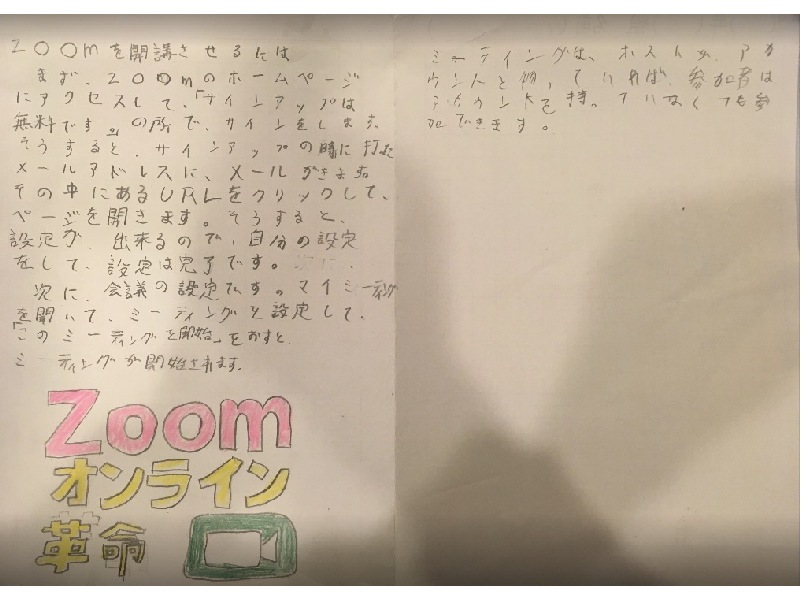 Zoomを開講させるには
まず、Zoomのホームページ
にアクセスして、「サインアップは
無料です」の所で、サインをします。
そうすると、サインアップの時に打た
メールアドレスに、メールがきます
その中にあるURLをクリックして、
ページを開きます。そうすると、
設定が、出来るので、自分の設定
をして、設定は完了です。
次に、会議の設定です。マイミーティング
を開いて、ミーティングを設定して、
「このミーティングを開始」をおすと、
ミーティングが開始されます。
Zoom
オンライン
革命
ミーティングは、ホストが、アカ
ウントと持っていれば、参加者は
アカウントを持っていなくても参
加できます。